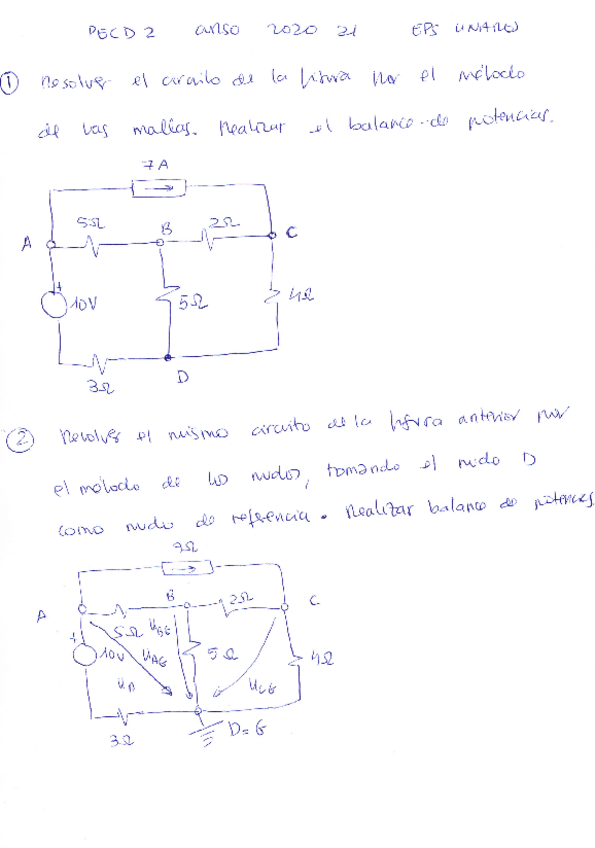 PECD 2 curso 2020 21 EPS LINARES
① Resolver el circuito de la figura por el método
de las mallas. Realizar el balance de potencias.
7 A
5Ω B 2Ω
A C
10V 5Ω 4Ω
3Ω D
② Resolver el mismo circuito de la figura anterior por
el método de los nudos, tomando el nudo D
como nudo de referencia. Realizar balance de potencias
A B 2Ω C
5Ω U_BG
10V U_AG 5Ω 4Ω
U_CG
3Ω D=G